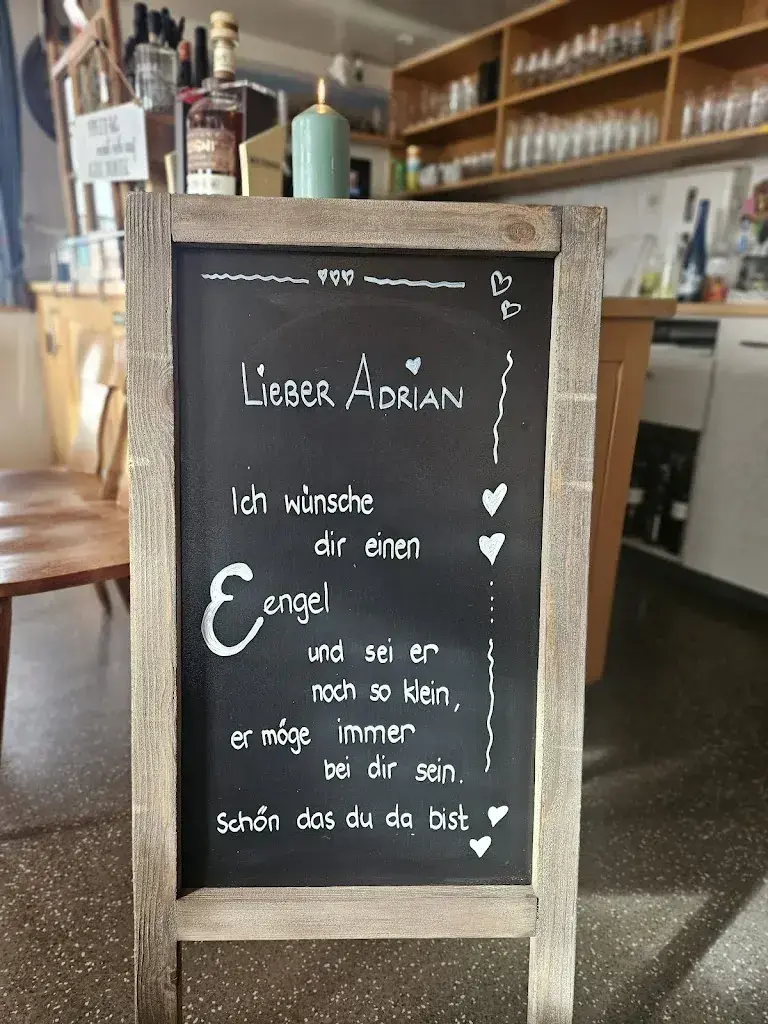 Lieber Adrian
Ich wünsche
dir einen
Eengel
und sei er
noch so klein,
er möge immer
bei dir sein.
Schön das du da bist